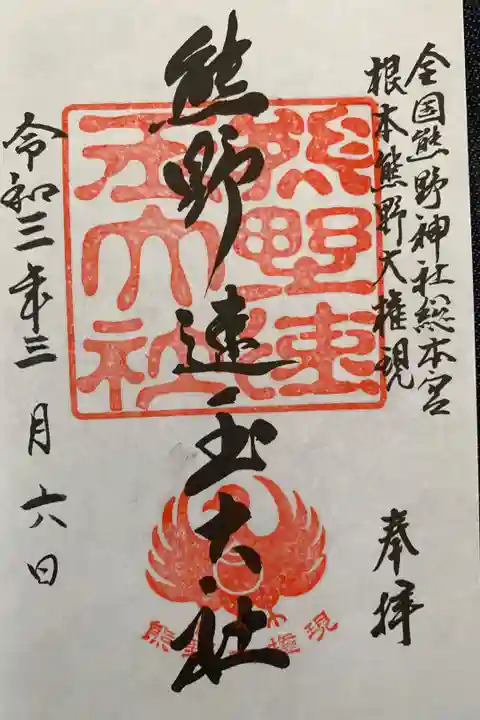 全国熊野神社総本宮
根本熊野大権現
奉拝
熊野速玉大社
熊野速玉大社
熊野大権現
令和三年三月六日